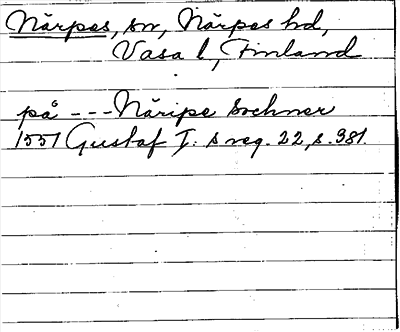 Närpes, sn, Närpes hd,
Vasa l, Finland
på --- Näripe sochner
1551 Gustaf I:s reg. 22, s. 381.